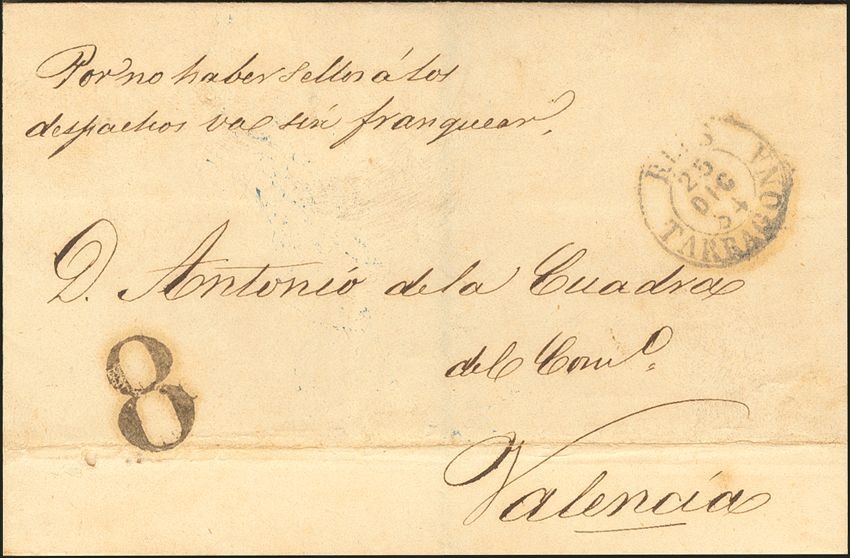 Por no haber sellos á los
despachos va sin franquear.
REUS
25
DIC
54
TARRAGONA
D. Antonio de la Cuadra
del Com.o
8
Valencia